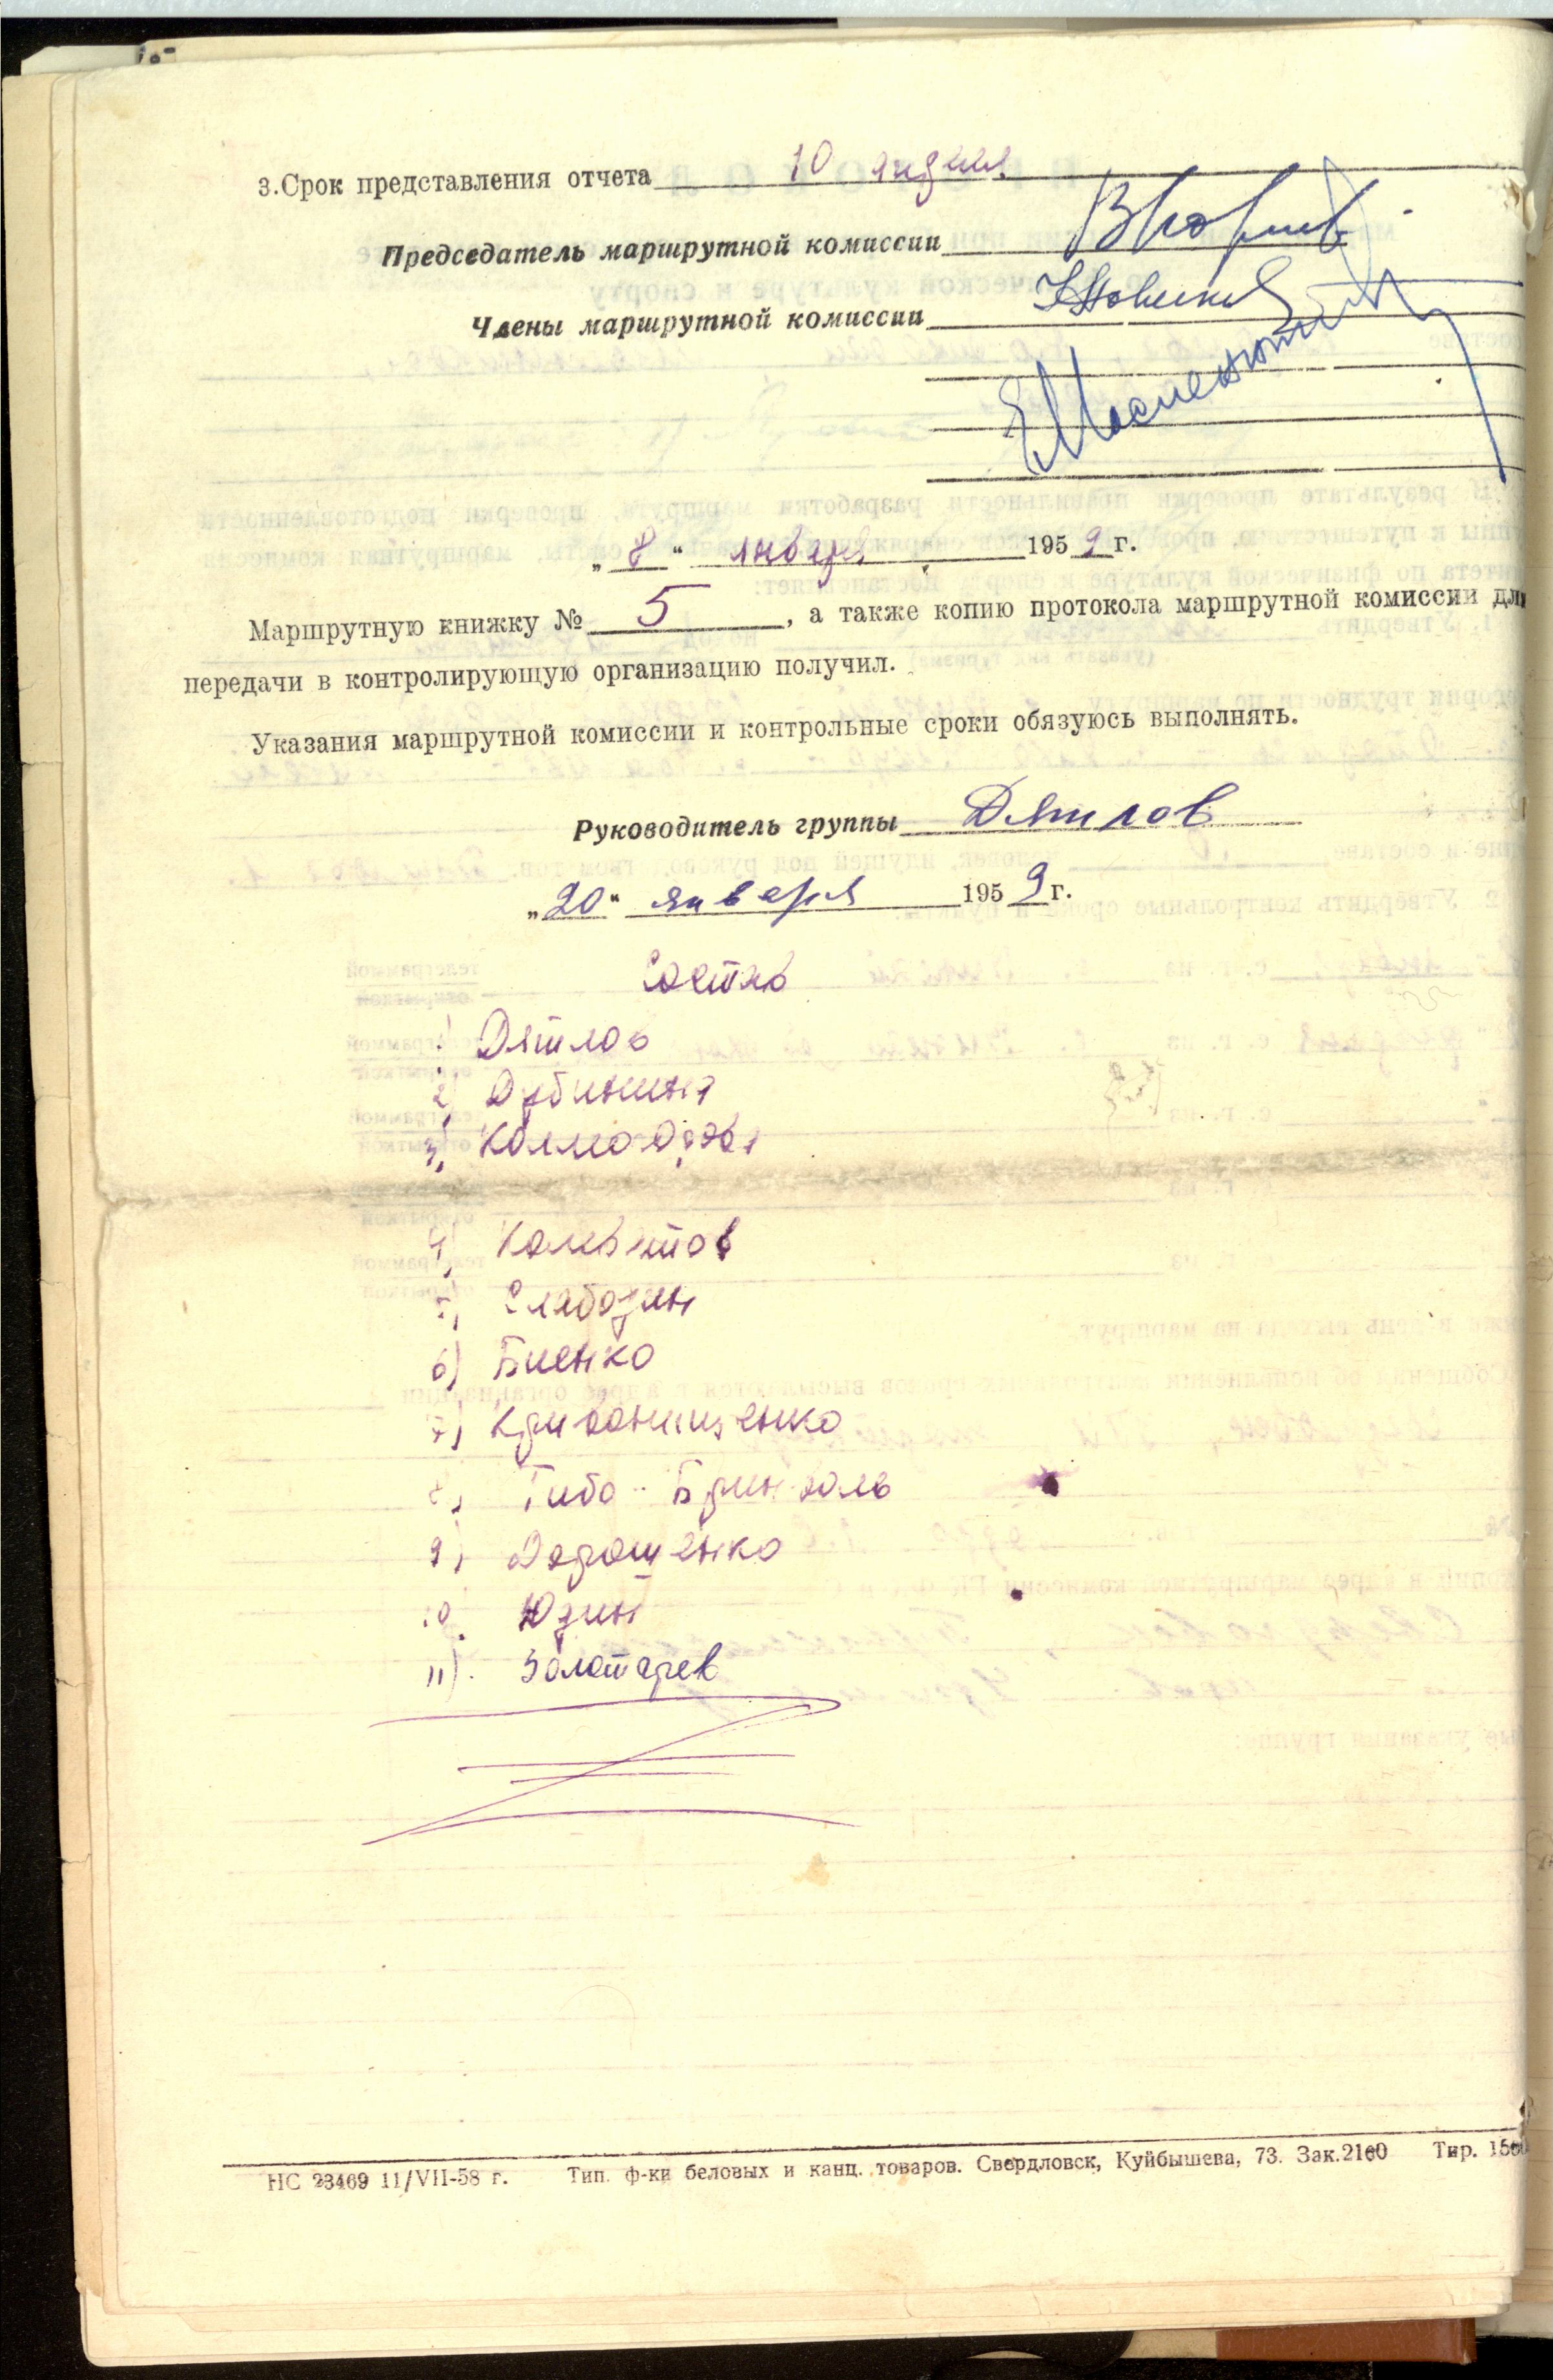 3.Срок представления отчета 10 апреля
Председатель маршрутной комиссии
Члены маршрутной комиссии
„8“ января 1959 г.
Маршрутную книжку № 5, а также копию протокола маршрутной комиссии для
передачи в контролирующую организацию получил.
Указания маршрутной комиссии и контрольные сроки обязуюсь выполнять.
Руководитель группы Дятлов
„20“ января 1959 г.
Состав
1) Дятлов
2) Дубинина
3) Колмогорова
4) Колеватов
5) Слабодин
6) Биенко
7) Кривонищенко
8) Тибо-Бриньоль
9) Дорошенко
10. Юдин
11). Золотарев
НС 23469 11/VII-58 г. Тип. ф-ки беловых и канц. товаров. Свердловск, Куйбышева, 73. Зак.2160 Тир.